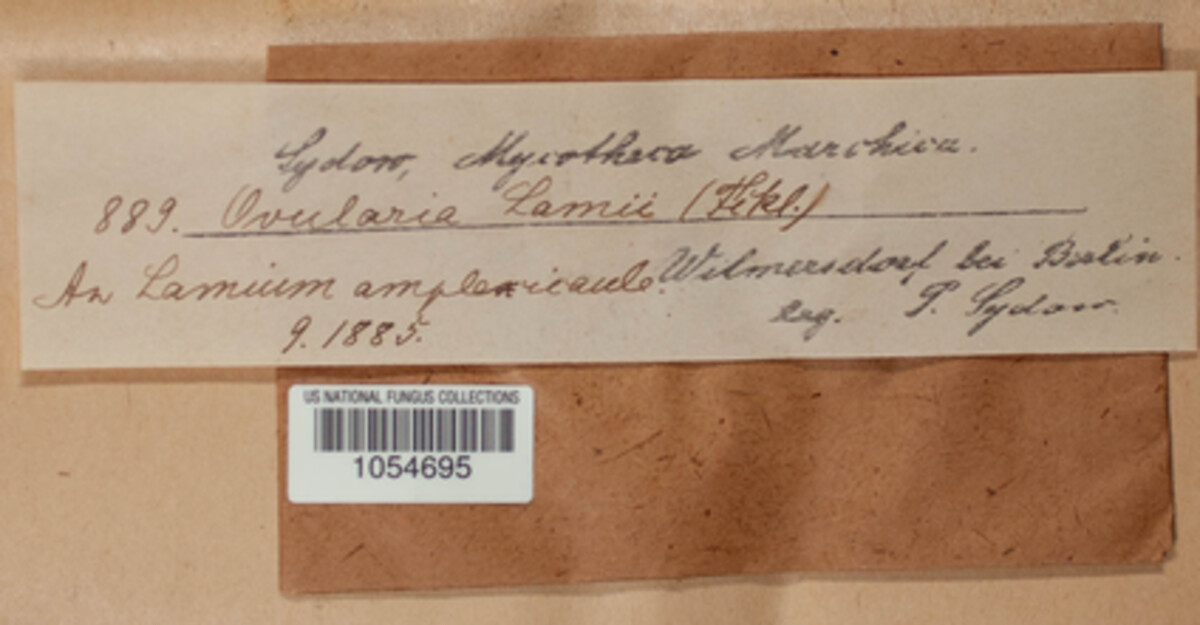 Sydow, Mycotheca Marchica.
889. Ovularia Lamii (Fckl.)
An Lamium amplexicaule. Wilmersdorf bei Berlin.
9. 1885. leg. P. Sydow.
US NATIONAL FUNGUS COLLECTIONS
1054695